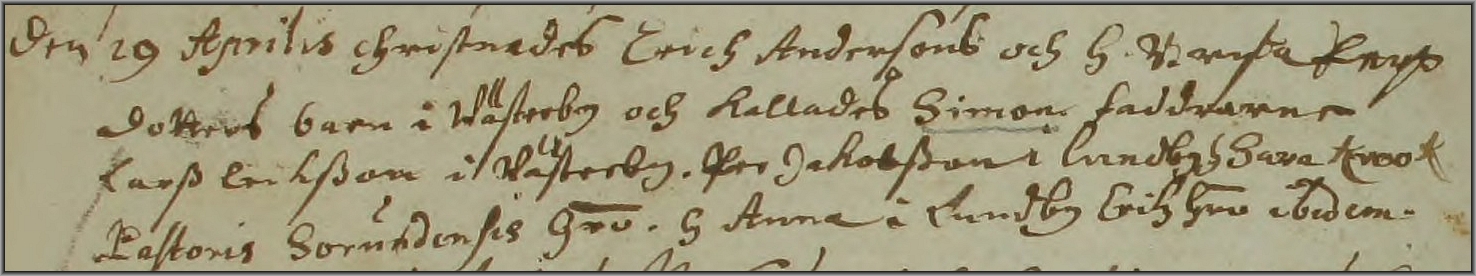 Den 29 Aprilis christnades Erich Andersons och h. Brita Perß
dotters barn i Västerby och kallades Simon. faddrarne
Larß Erikßon i Västerby. Per Jakobßon i Lundby, h Sara
Pastoris Sorundensis hru. h Anna i Lundby Erichs hru ibidem.